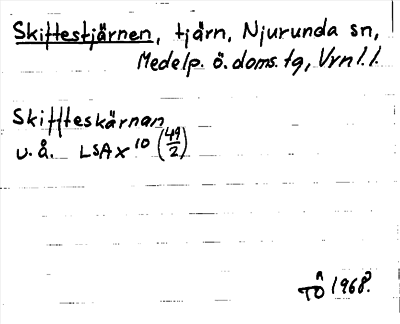 Skiftestjärnen, tjärn, Njurunda sn,
Medelp. ö. doms. tg, Vrnl. l.
Skiffteskärnan
u. å. LSA X 10 (49/2)
1968.